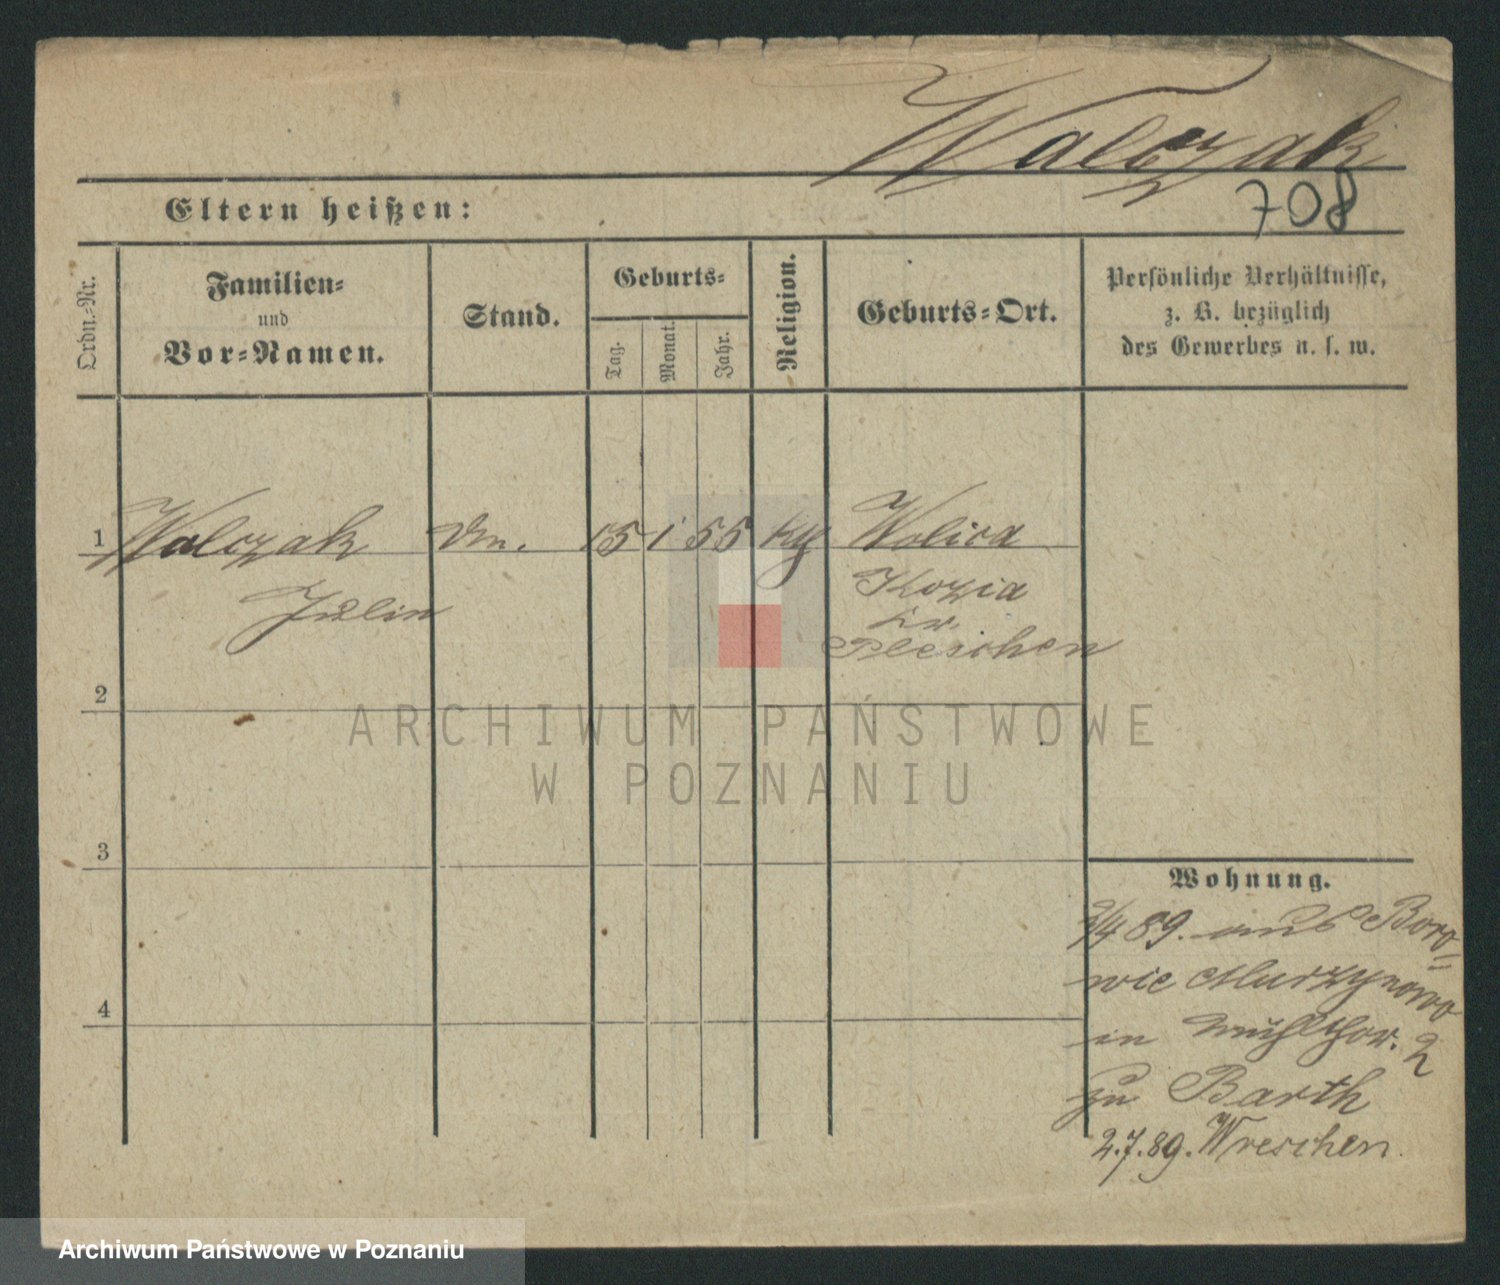 Walczak
708
Eltern heißen:
Ordn.-Nr.
Familien-
und
Vor-Namen.
Stand.
Geburts-
Tag.
Monat.
Jahr.
Religion.
Geburts-Ort.
Persönliche Verhältnisse,
z. B. bezüglich
des Gewerbes u. s. w.
1 Walczak 15 1 55 Wolica
Kozia
Kr.
Pleschen
2
3
4
Wohnung.
2/4 89. aus Boro-
wie Murzynowo
in Mühlthor. 2
zu Barth
2.7.89. Wreschen.
ARCHIWUM PAŃSTWOWE
W POZNANIU
Archiwum Państwowe w Poznaniu